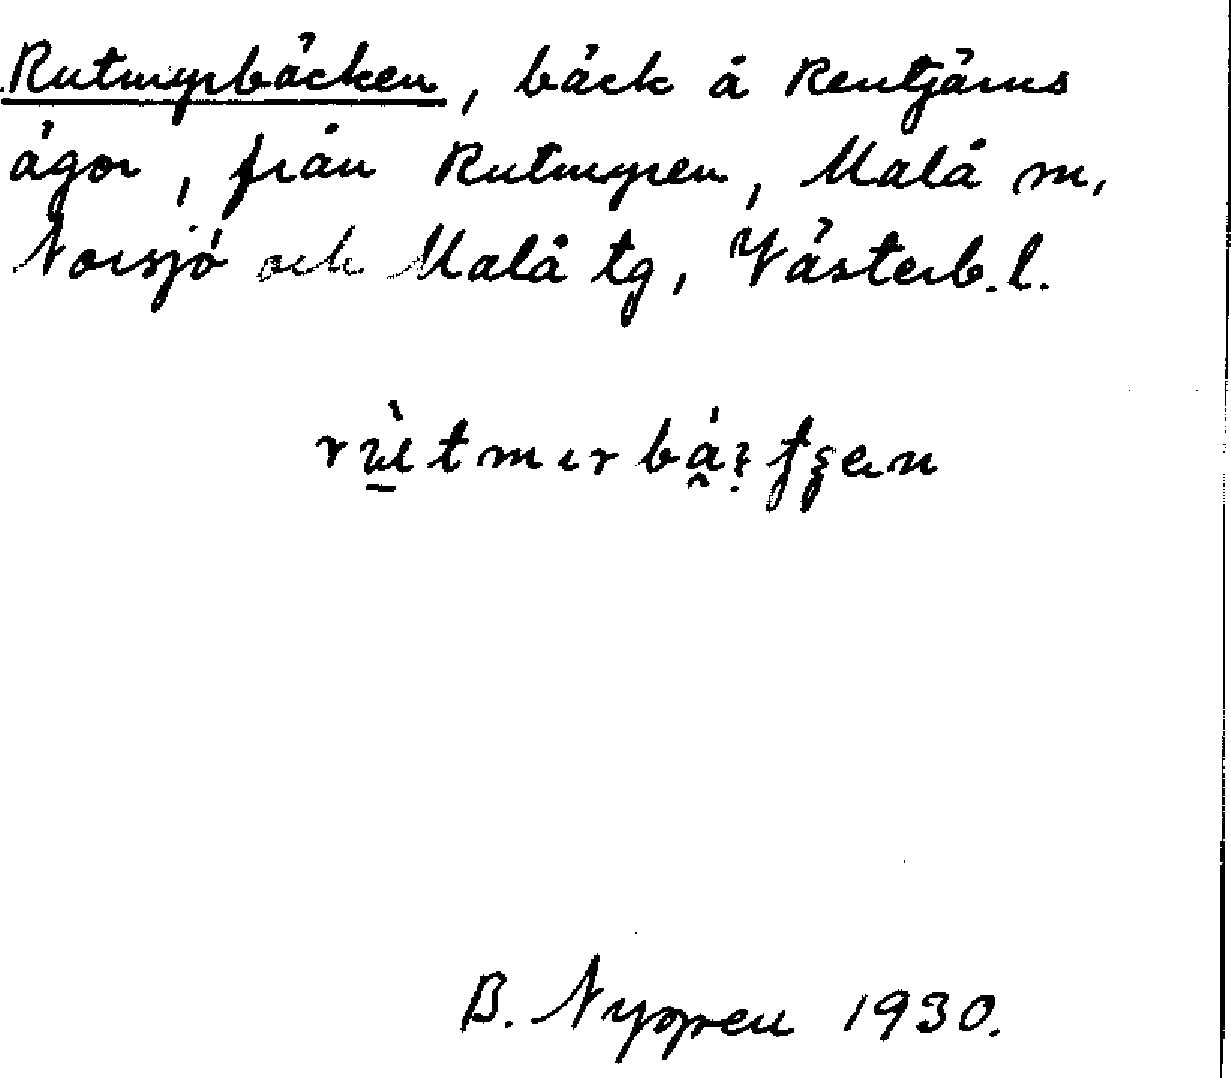 Rutmyrbäcken, bäck å Rentjärns
ägor, från Rutmyren, Malå m,
Norsjö och Malå tg, Västerb.l.
B. Nyppen 1930.